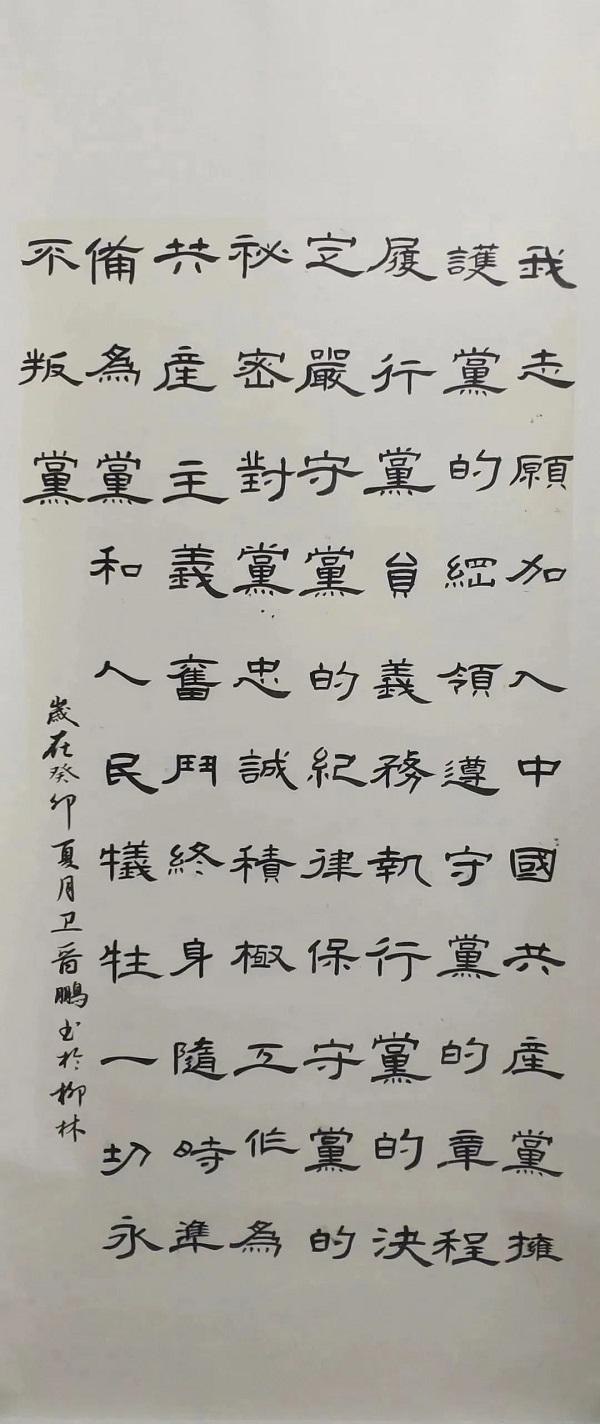 我志願加入中國共産黨擁
護黨的綱領遵守黨的章程
履行黨員義務執行黨的決
定嚴守黨的紀律保守黨的
祕密對黨忠誠積極工作為
共産主義奮鬥終身隨時準
備為黨和人民犧牲一切永
不叛黨
歲在癸卯夏月卫晋鵬书於柳林